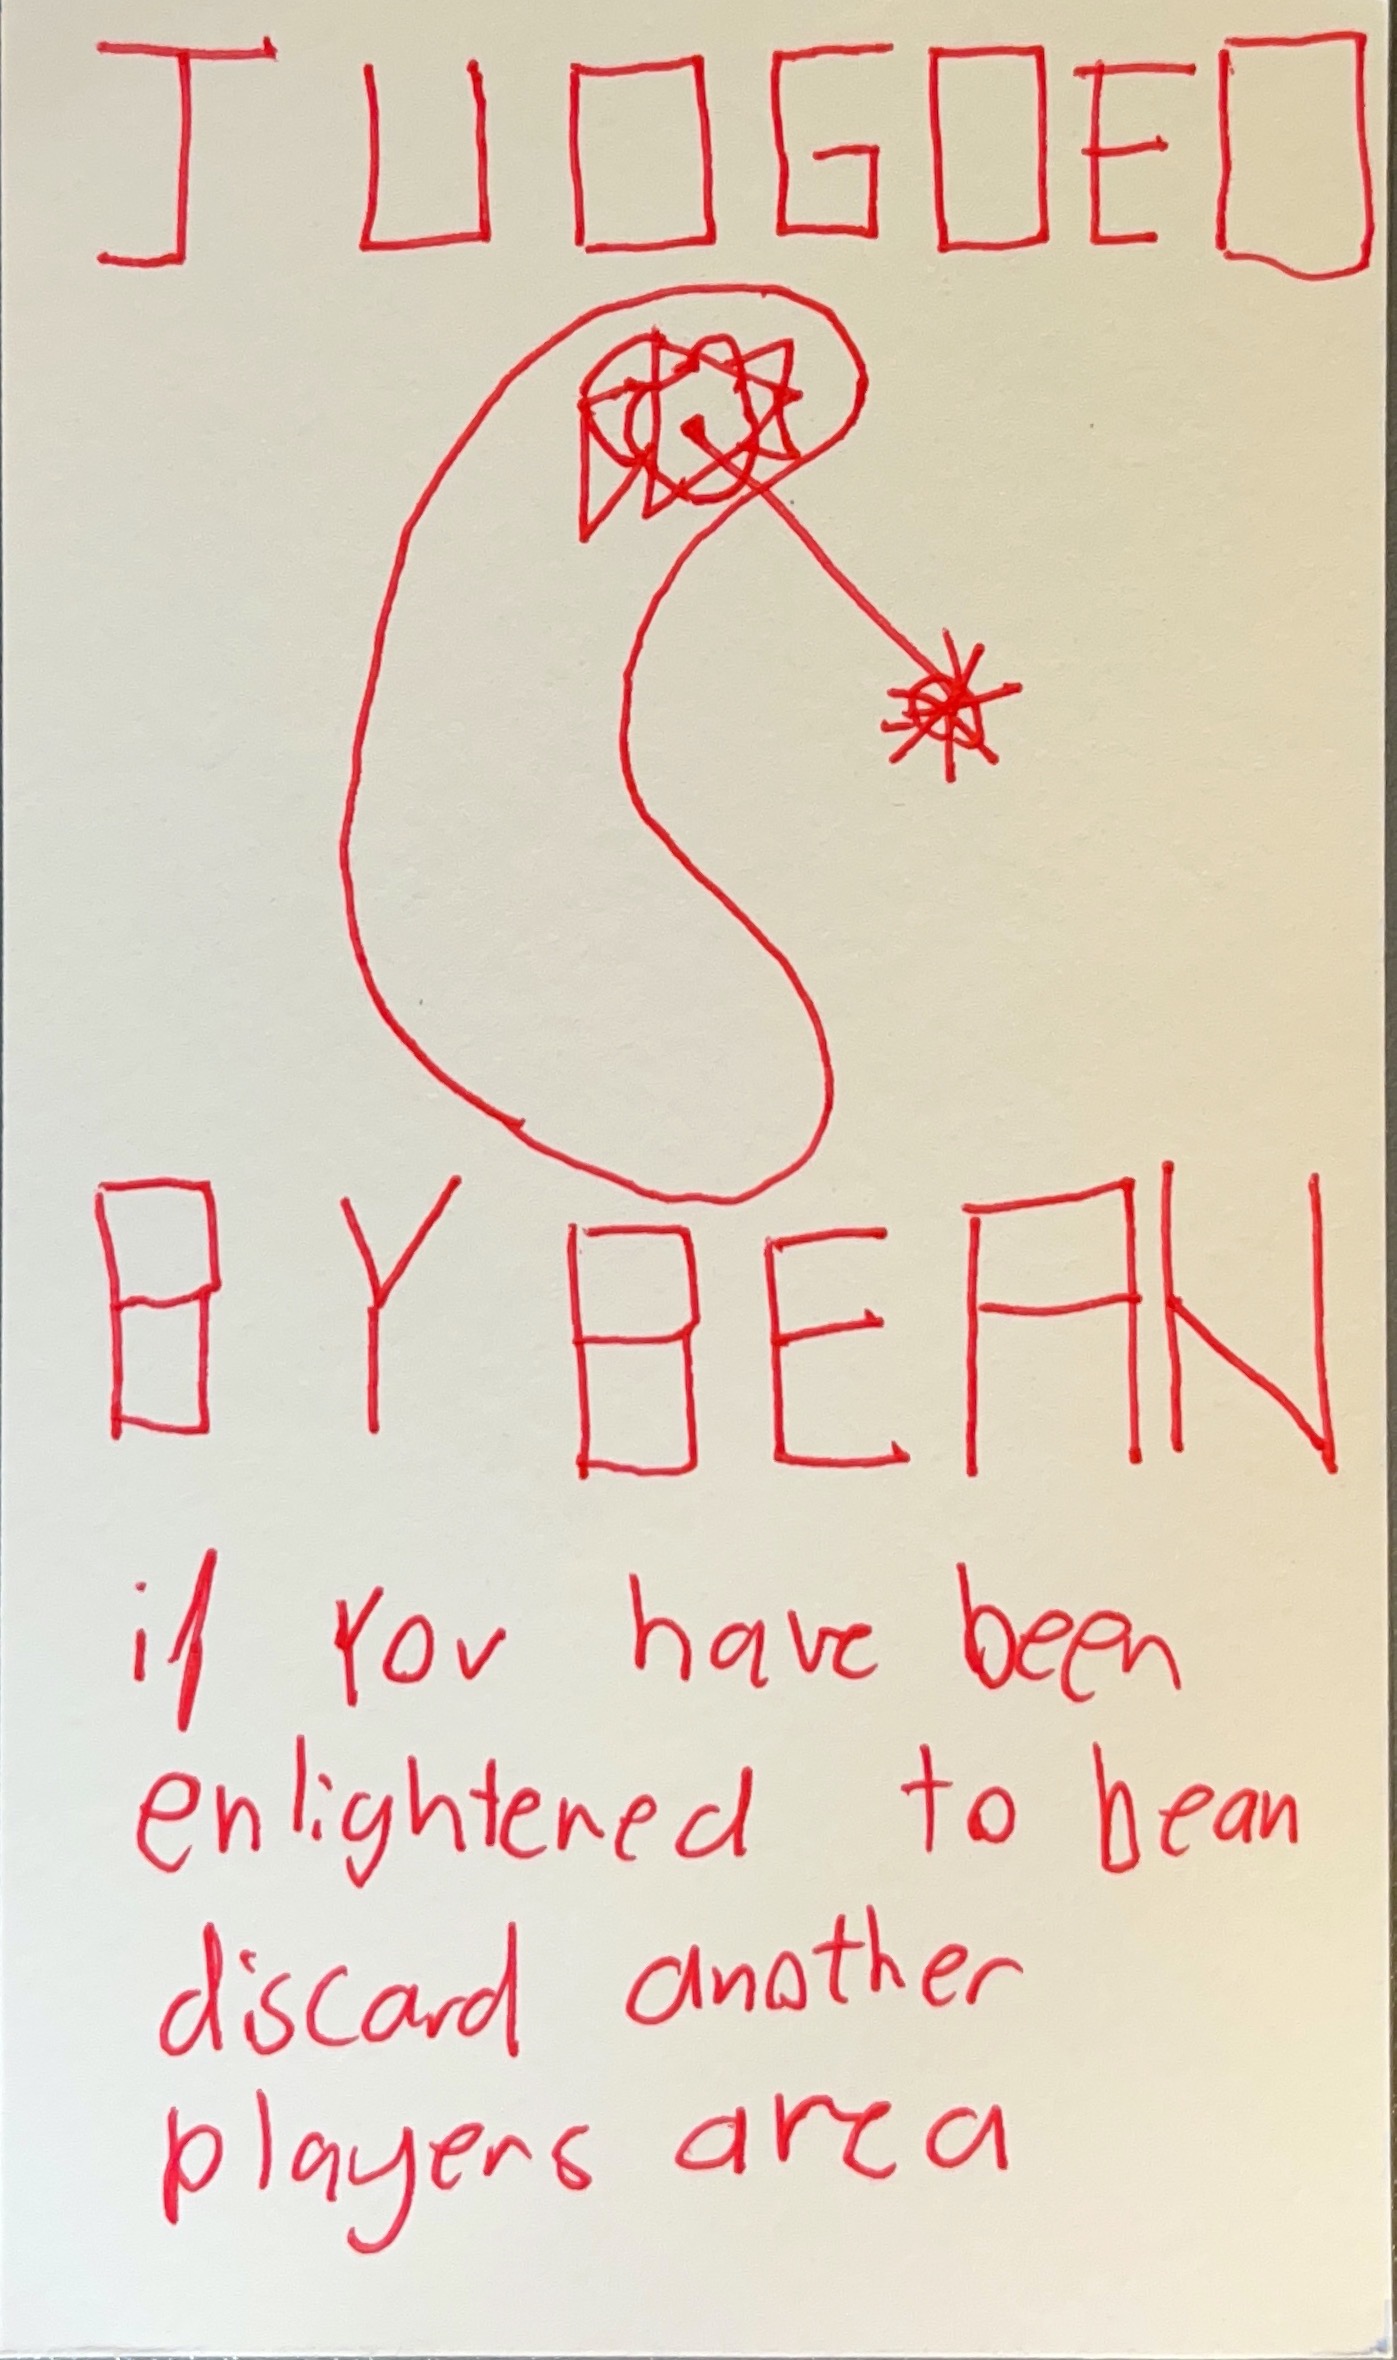 JUDGDED
BY BEAN
if you have been
enlightened to bean
discard another
players area